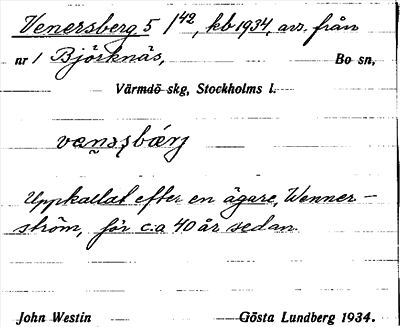 Venersberg 5 /42, kb 1934, avs. från
nr 1 Björknäs, Bo sn,
Värmdö skg, Stockholms l.
Uppkallat efter en ägare, Wenner-
ström, för c:a 40 år sedan.
John Westin Gösta Lundberg 1934.